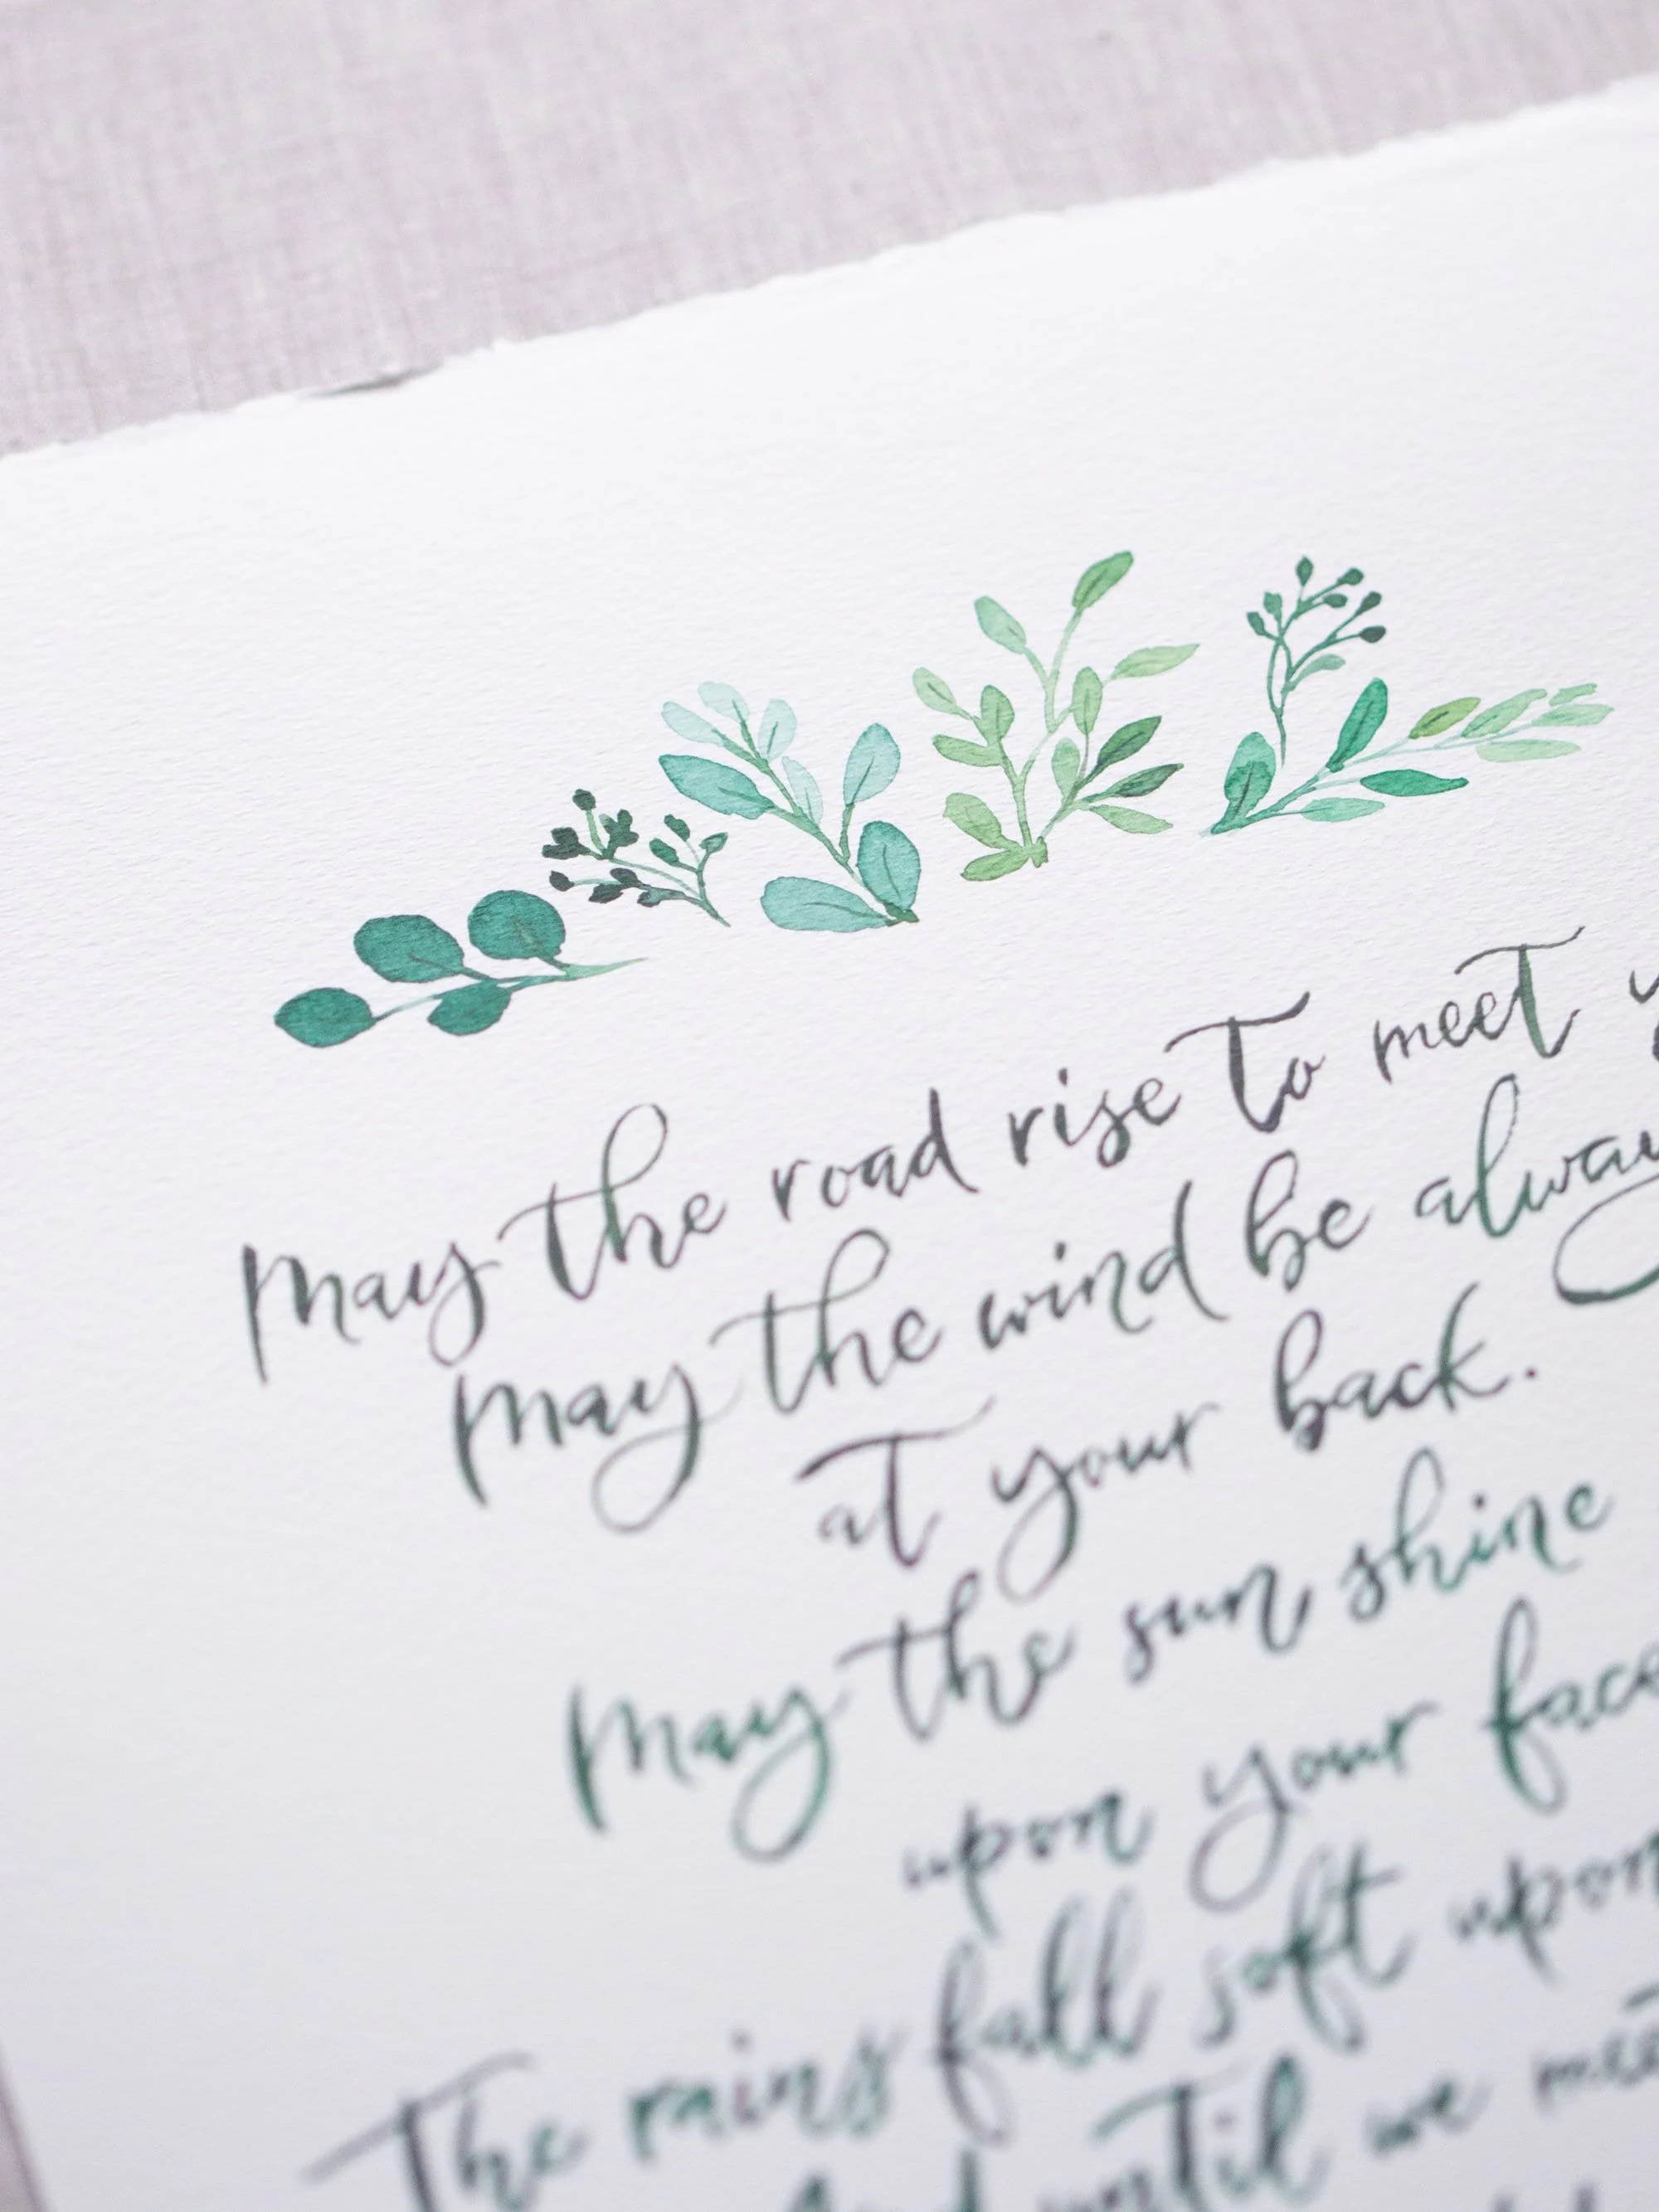 May the road rise to meet
May the wind be always
at your back.
May the sun shine
upon your face
The rains fall soft upon
And until we meet